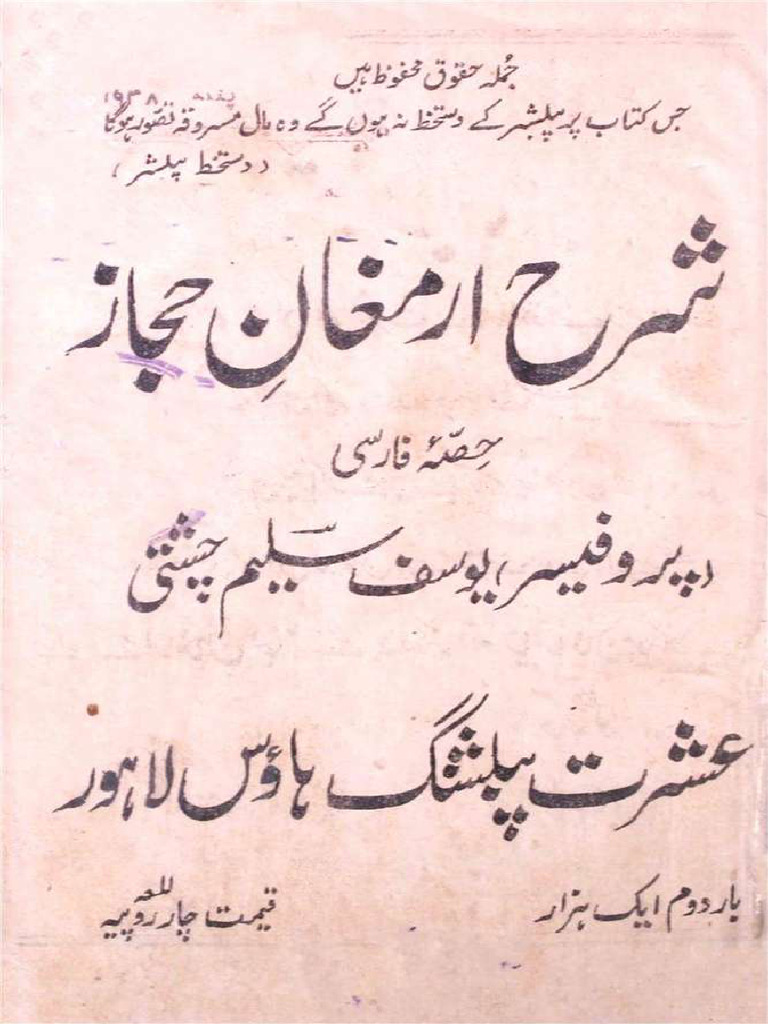 جُملہ حقوق محفوظ ہیں
جس کتاب پر پبلشر کے دستخط نہ ہوں گے وہ مال مسروقہ تصوّر ہوگا
(دستخط پبلشر)
شرح ارمغانِ حجاز
حصّۂ فارسی
(پروفیسر) یوسف سلیم چشتی
عشرت پبلشنگ ہاؤس لاہور
بار دوم ایک ہزار
قیمت چار روپیہ